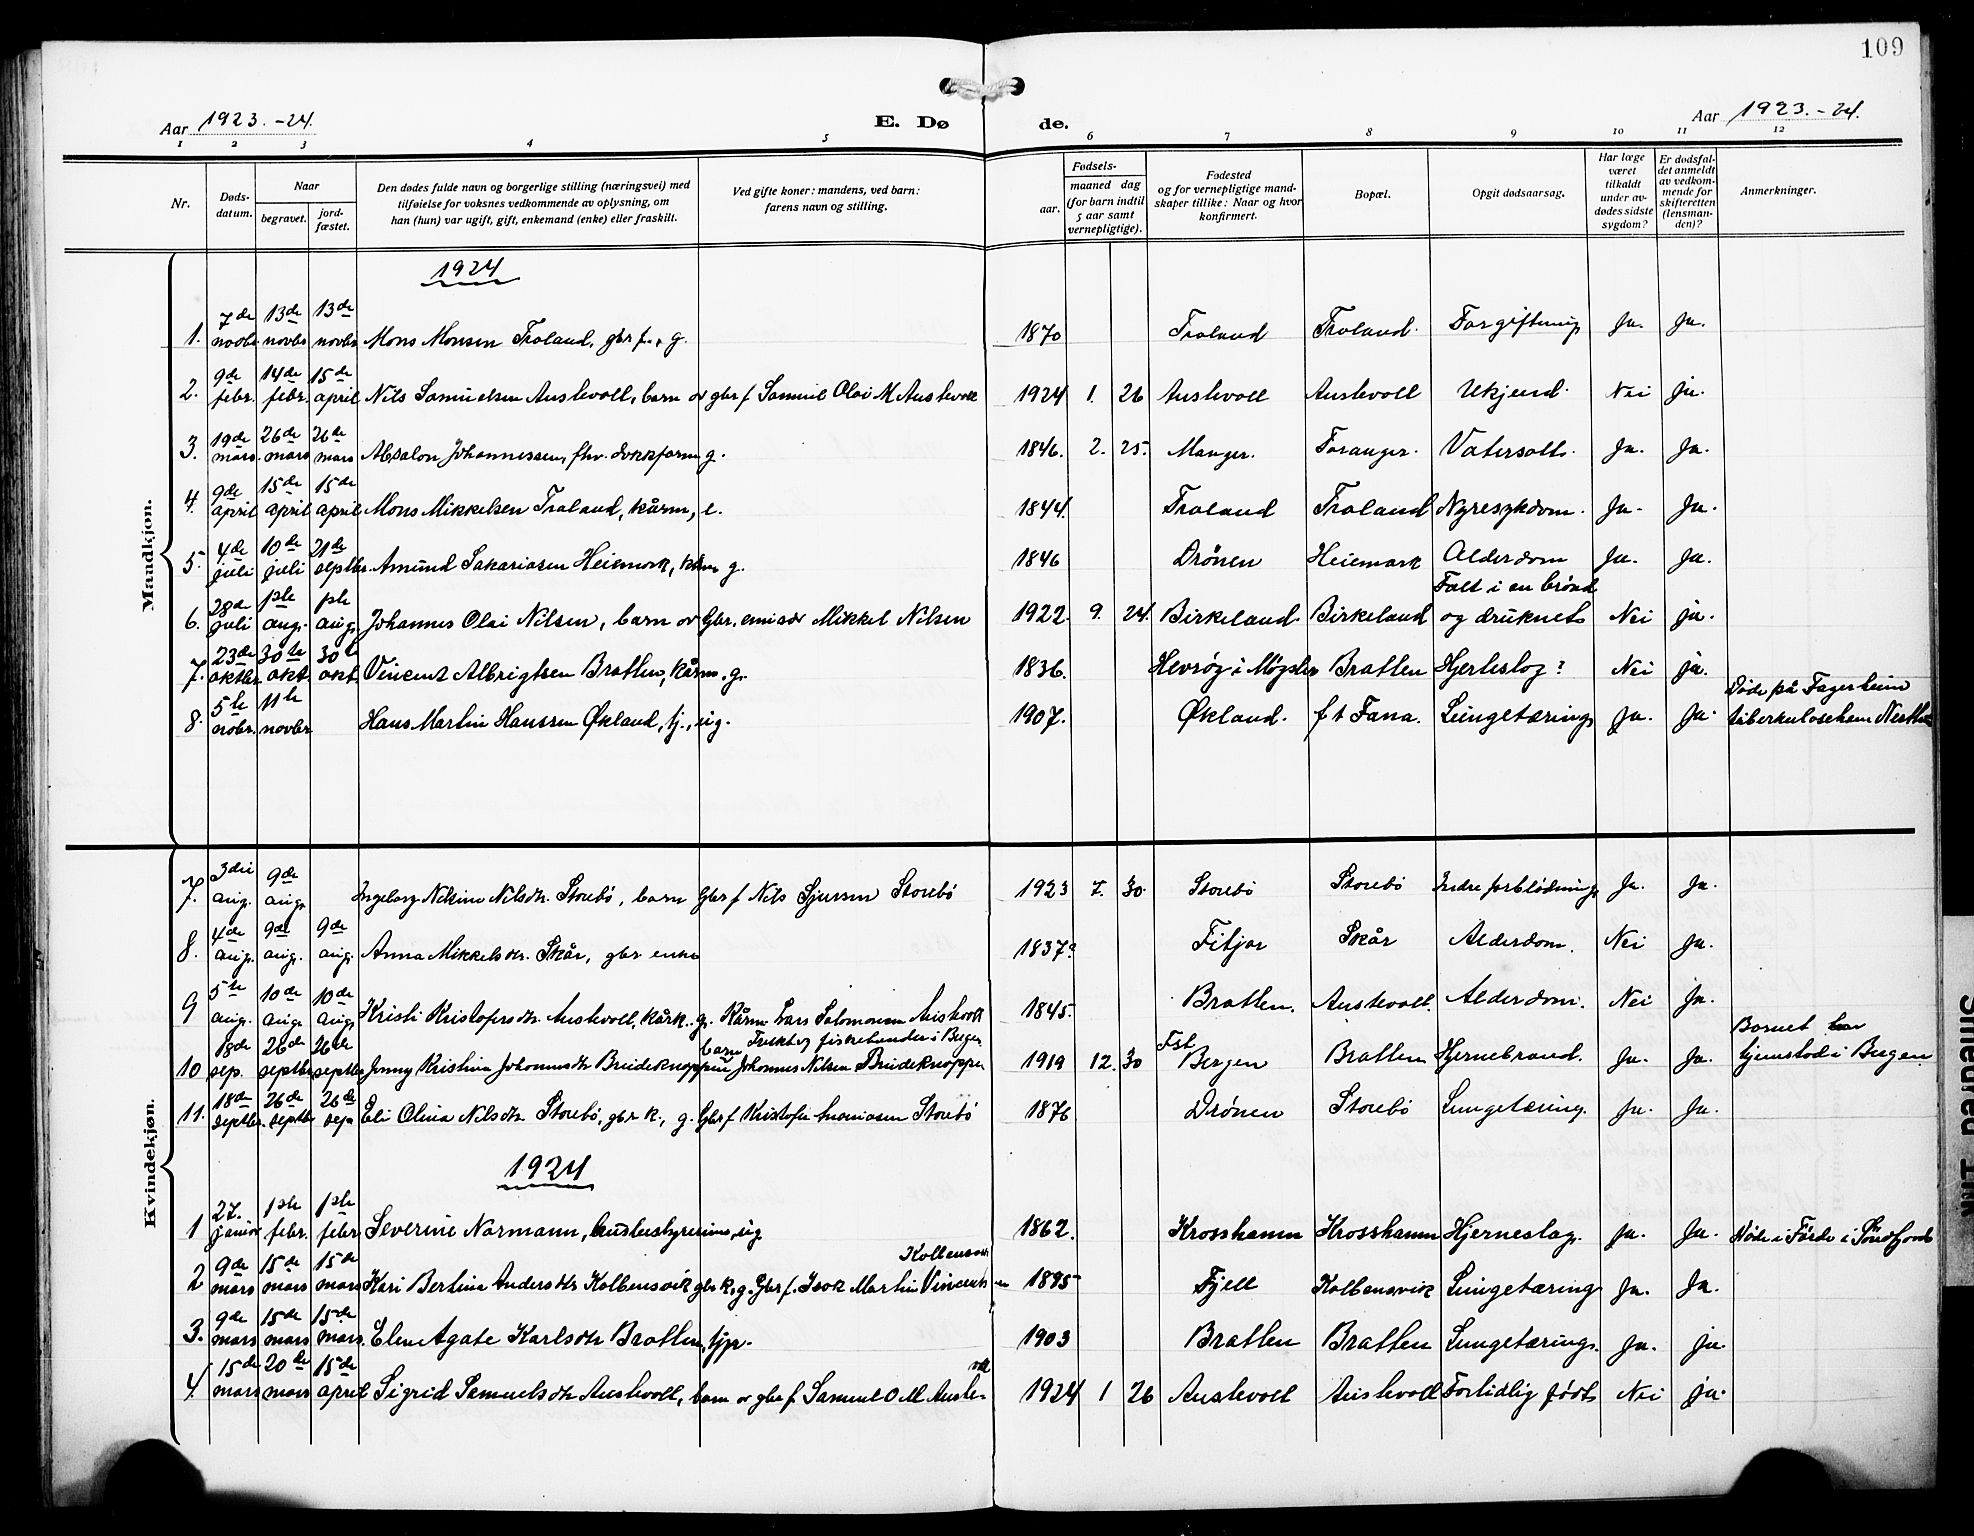 109
Aar 1923.-24. E. Dø de. Aar 1923.-24.
1 2 3 4 5 6 7 8 9 10 11 12
Nr. Døds-datum. Naar begravet. jord-fæstet. Den dødes fulde navn og borgerlige stilling (næringsvei) med tilføielse for voksnes vedkommende av oplysning, om han (hun) var ugift, gift, enkemand (enke) eller fraskilt. Ved gifte koner: mandens, ved barn: farens navn og stilling. Fødsels- aar. maaned dag (for barn indtil 5 aar samt vernepligtige). Fødested og for vernepligtige mand-skaper tillike: Naar og hvor konfirmert. Bopæl. Opgit dødsaarsag. Har læge været tilkaldt under av-dødes sidste sygdom? Er dødsfal-det anmeldt av vedkom-mende for skifteretten (lensman-den)? Anmerkninger.
Mandkjøn.
1924
1. 7de novbr. 13de novbr. 13de novbr. Mons Monsen Troland, gbr f., g. 1870 Troland Troland. Forgiftning Ja. Ja.
2. 9de febr. 14de febr. 15de april Nils Samuelsen Austevoll, barn av gbr f Samuel Olai M Austevoll 1924 1. 26 Austevoll Austevoll Ukjend. Nei ja.
3. 19de mars. 26de mars 26de mars Absalon Johannessen, fhv. g. 1846. 2. 25. Manger. Toranger. Vatersott. Ja. Ja.
4. 9de april 15de april 15de april Mons Mikkelsen Troland, kårm, e. 1844. Troland Troland Nyresykdom. Ja. Ja.
5. 4de juli 10de juli 21de septbr. Amund Sakariasen Heiemark, kårm g. 1846 Drönen Heiemark Alderdom Ja. Ja.
6. 28de juli 1ste aug. 1ste aug. Johannes Olai Nilsen, barn av Gbr, emisær Mikkel Nilsen 1922. 9. 24. Birkeland. Birkeland Falt i en brönd og druknet Nei ja.
7. 23de oktbr. 30te okt. 30te okt. Vincent Albrigtsen Bratten, kårm. g. 1836. Hevrøy i Møgster Bratten Hjerteslag? Nei ja.
8. 5te nobr. 11te novbr Hans Martin Hanssen Økland, tj., ug. 1907. Økland. f t Fana. Lungetæring Ja. Ja. Døde på Fagerheim tuberkulosehem
Kvindekjøn.
7. 3die aug. 9de aug. Ingeborg Nilsine Nilsdtr. Storebö, barn Gbr f Nils Sjursen Storebö 1923 7. 30. Storebö Storebö Indre forblödning Ja. Ja.
8. 4de aug. 9de aug. 9de aug. Anna Mikkelsdtr. Skår, gbr enke 1837? Fitjar Skår Alderdom. Nei Ja.
9 5te aug. 10de aug 10de aug Kristi Kristofersdtr. Austevoll, kårk. g. Kårm Lars Salomonsen Austevoll 1845. Bratten. Austevoll. Alderdom. Nei Ja.
10 18de sep. 26de septbr 26de septbr Jenny Kristina Johannesdtr Bruideknappen barn Frukt og fiskehandler i Bergen Johannes Nilsen Bruideknappen 1919 12. 30 Fst Bergen Bratten Hjernebrand. Ja. Ja. Barnet har hjemsted i Bergen.
11. 18de septbr. 26de septbr 26de sep Eli Olina Nilsdtr. Storebö, gbr k, g. Gbr f Kristofer Storebö 1876 Drönen Storebö Lungetæring. Ja. Ja.
1924
1 27. januar 1ste febr. 1ste febr. Severine Normann, husbestyrerinne, ug 1862. Krosshamn Krosshamn Hjerneslag. Ja. Ja. Døde i Förde i Söndfjord
2 9de mars 15de mars 15de mars Kari Bertina Andersdtr Kolbensvik gbr k, g. Gbr f. Isak Martin Vincentsen Kolbensv. 1895 Fjell Kolbensvik Lungetæring Ja. Ja.
3. 9de mars 15de mars 15de mars. Elen Agate Karlsdtr Bratten, tjp. 1903 Bratten Bratten Lungetæring. Ja. ja
4. 15de mars 20de mars 15de april Sigrid Samuelsdtr Austevoll, barn av gbr f Samuel O M Auste-voll 1924 1 26 Austevoll Austevoll Fortidlig födt Nei ja.